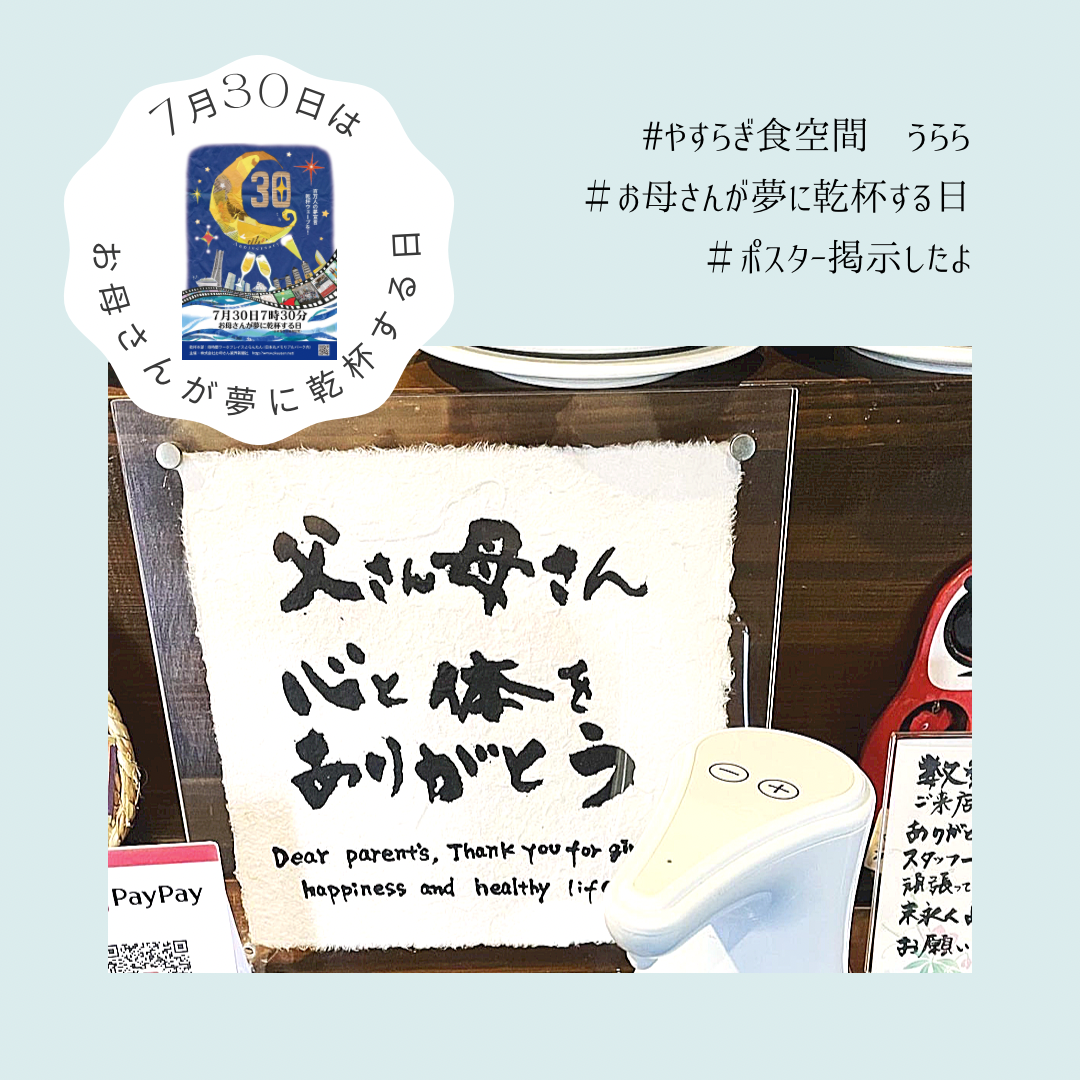 7月30日は
お母さんが夢に乾杯する日
30
百万人の夢宣言
乾杯ウェーブを!
7月30日7時30分
お母さんが夢に乾杯する日
#やすらぎ食空間 うらら
#お母さんが夢に乾杯する日
#ポスター掲示したよ
父さん母さん
心と体を
ありがとう
Dear parent's, Thank you for
happiness and healthy life
PayPay
− +
ご来店
ありがと
スタッフ一
頑張って
末永くよ
お願い